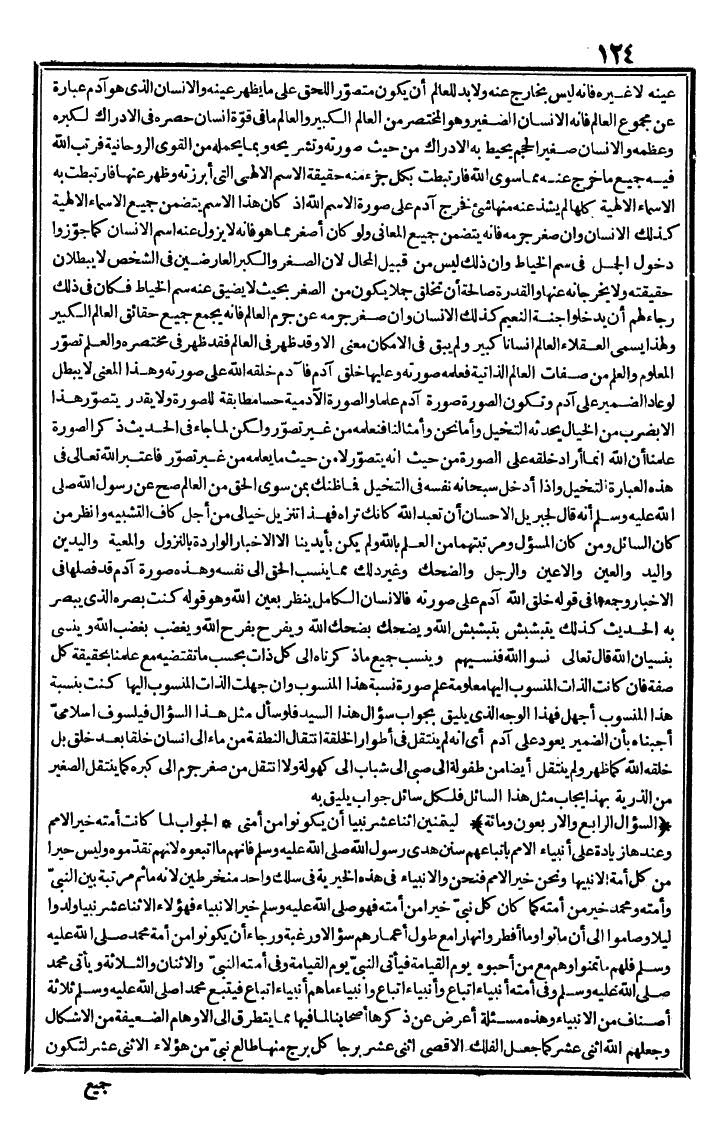 ١٢٤
عينه لا غيره فانه ليس بخارج عنه ولابد للعالم أن يكون متصوّر اللحق على ما يظهر عينه والانسان الذى هو آدم عبارة
عن مجموع العالم فانه الانسان الصغير وهو المختصر من العالم الكبير والعالم ما فى قوّة انسان حصره فى الادراك لكبره
وعظمه والانسان صغير الحجم يحيط به الادراك من حيث صورته وتشريحه وبما يحمله من القوى الروحانية فرتب الله
فيه جميع ما خرج عنه مما سوى الله فارتبطت بكل جزء منه حقيقة الاسم الالهى التى أبرزته وظهر عنها فارتبطت به
الاسماء الالهية كلها لم يشذ عنه منها شئ فخرج آدم على صورة الاسم الله اذ كان هذا الاسم يتضمن جميع الاسماء الالهية
كذلك الانسان وان صغر جرمه فانه يتضمن جميع المعانى ولو كان أصغر مما هو فانه لا يزول عنه اسم الانسان كما جوّزوا
دخول الجمل فى سم الخياط وان ذلك ليس من قبيل المحال لان الصغر والكبر العارضين فى الشخص لا يبطلان
حقيقته ولا يخرجانه عنها والقدرة صالحة أن تخلق جملا يكون من الصغر بحيث لا يضيق عنه سم الخياط فكان فى ذلك
رجاء لهم أن يدخلوا جنة النعيم كذلك الانسان وان صغر جرمه عن جرم العالم فانه يجمع جميع حقائق العالم الكبير
ولهذا يسمى العقلاء العالم انسانا كبير ولم يبق فى الامكان معنى الا وقد ظهر فى العالم فقد ظهر فى مختصره والعلم تصوّر
المعلوم والعلم من صفات العالم الذاتية فعلمه صورته وعليها خلق آدم فآدم خلقه الله على صورته وهذا المعنى لا يبطل
لو عاد الضمير على آدم وتكون الصورة صورة آدم علما والصورة الآدمية حسا مطابقة للصورة ولا يقدر يتصوّر هذا
الا بضرب من الخيال يحدثه التخيل وأما نحن وأمثالنا فنعلمه من غير تصوّر ولكن لما جاء فى الحديث ذكر الصورة
علمنا أن الله انما أراد خلقه على الصورة من حيث انه يتصوّر لا من حيث ما يعلمه من غير تصوّر فاعتبر الله تعالى فى
هذه العبارة التخيل واذا أدخل سبحانه نفسه فى التخيل فما ظنك بمن سوى الحق من العالم صح عن رسول الله صلى
الله عليه وسلم أنه قال لجبريل الاحسان أن تعبد الله كانك تراه فهذا تنزيل خيالى من أجل كاف التشبيه وانظر من
كان السائل ومن كان المسؤل ومرتبتهما من العلم بالله ولم يكن بأيدينا الا الاخبار الواردة بالنزول والمعية واليدين
واليد والعين والاعين والرجل والضحك وغير ذلك مما ينسب الحق الى نفسه وهذه صورة آدم قد فصلها فى
الاخبار وجمعها فى قوله خلق الله آدم على صورته فالانسان الكامل ينظر بعين الله وهو قوله كنت بصره الذى يبصر
به الحديث كذلك يتبشبش بتبشبش الله ويضحك بضحك الله ويفرح بفرح الله ويغضب بغضب الله وينسى
بنسيان الله قال تعالى نسوا الله فنسيهم وينسب جميع ما ذكرناه الى كل ذات بحسب ما تقتضيه مع علمنا بحقيقة كل
صفة فان كانت الذات المنسوب اليها معلومة علم صورة نسبة هذا المنسوب وان جهلت الذات المنسوب اليها كنت بنسبة
هذا المنسوب أجهل فهذا الوجه الذى يليق بجواب سؤال هذا السيد فلو سأل مثل هذا السؤال فيلسوف اسلامىّ
أجبناه بأن الضمير يعود على آدم أى انه لم ينتقل فى أطوار الخلقة انتقال النطفة من ماء الى انسان خلقا بعد خلق بل
خلقه الله كما ظهر ولم ينتقل أيضا من طفولة الى صبى الى شباب الى كهولة ولا انتقل من صغر جرم الى كبره كما ينتقل الصغير
من الذرية بهذا يجاب مثل هذا السائل فلكل سائل جواب يليق به
﴿السؤال الرابع والاربعون ومائة﴾ ليتمنين اثنا عشر نبيا أن يكونوا من أمتى * الجواب لما كانت أمته خير الامم
وعندها زيادة على أنبياء الامم باتباعهم سنن هدى رسول الله صلى الله عليه وسلم فانهم ما اتبعوه لانهم تقدّموه وليس خيرا
من كل أمة الا نبيها ونحن خير الامم فنحن والانبياء فى هذه الخيرية فى سلك واحد منخرطين لانه ما ثم مرتبة بين النبىّ
وأمته ومحمد خير من أمته كما كان كل نبىّ خيرا من أمته فهو صلى الله عليه وسلم خير الانبياء فهؤلاء الاثنا عشر نبيا ولدوا
ليلا وصاموا الى أن ماتوا وما أفطروا نهارا مع طول أعمارهم سؤالا ورغبة ورجاء أن يكونوا من أمة محمد صلى الله عليه
وسلم فلهم ما تمنوا وهم مع من أحبوه يوم القيامة فيأتى النبىّ يوم القيامة وفى أمته النبىّ والاثنان والثلاثة ويأتى محمد
صلى الله عليه وسلم وفى أمته أنبياء اتباع وأنبياء اتباع وأنبياء ما هم أنبياء اتباع فيتبع محمدا صلى الله عليه وسلم ثلاثة
أصناف من الانبياء وهذه مسئلة أعرض عن ذكرها أصحابنا لما فيها مما يتطرق الى الاوهام الضعيفة من الاشكال
وجعلهم الله اثنى عشر كما جعل الفلك الاقصى اثنى عشر برجا كل برج منها طالع نبىّ من هؤلاء الاثنى عشر لتكون
جميع